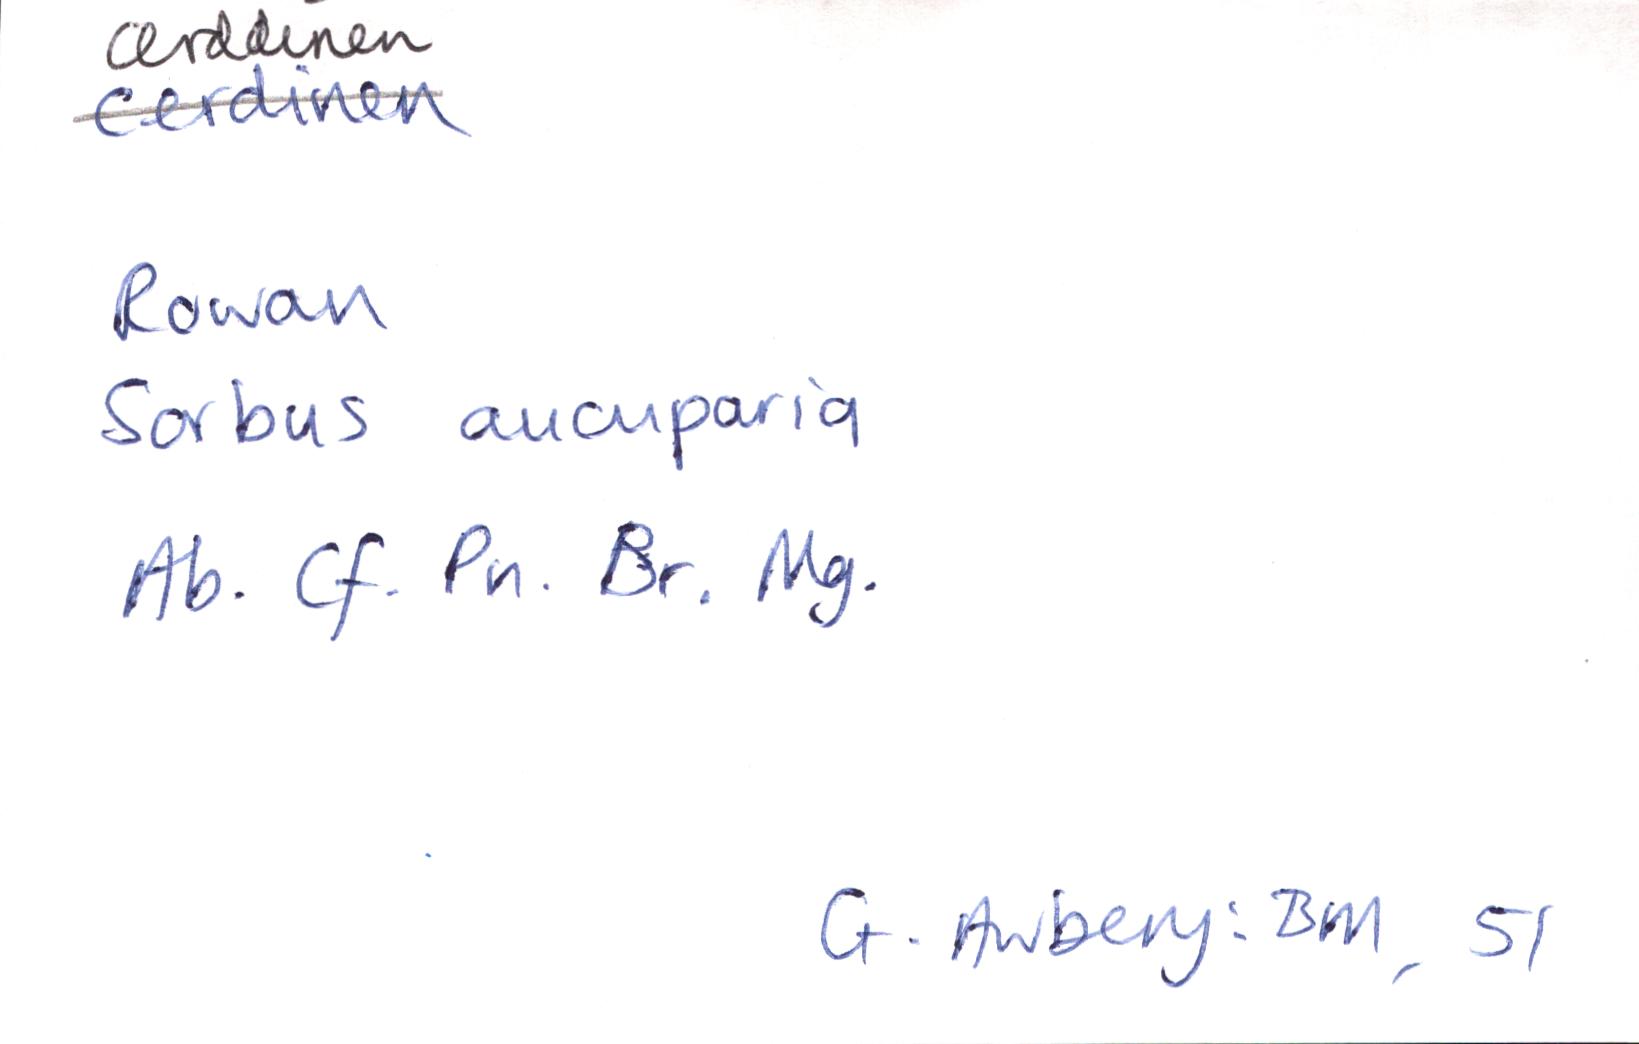 cerddinen
cerdinen
Rowan
Sorbus aucuparia
Ab. Cf. Pn. Br. Mg.
G. Awbery: BM, 51